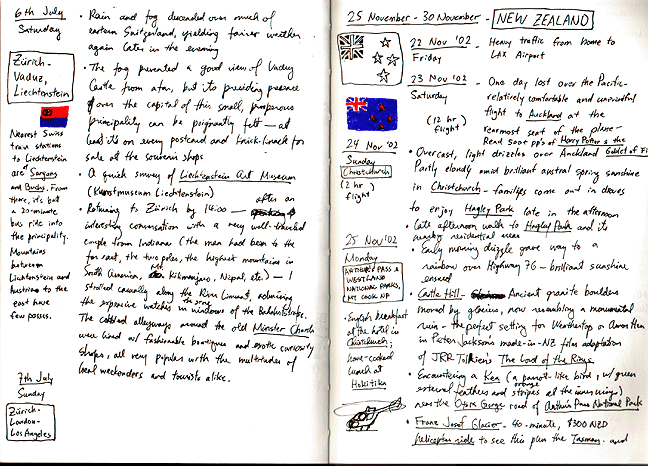 6th July
Saturday
Zürich-
Vaduz,
Liechtenstein
Nearest Swiss
train stations
to Liechtenstein
are Sargans
and Buchs. From
there, it's but
a 20-minute
bus ride into
the principality.
Mountains
between
Liechtenstein and
Austria to the
east have
few passes.
7th July
Sunday
Zürich-
London-
Los Angeles
• Rain and fog descended over much of
eastern Switzerland, yielding fairer weather
again later in the evening
• The fog prevented a good view of Vaduz
Castle from afar, but its presiding presence
over the capital of this small, prosperous
principality can be poignantly felt — at
least it's on every postcard and knick-knack for
sale at the souvenir shops
• A quick survey of Liechtenstein Art Museum
(Kunstmuseum Liechtenstein)
• Returning to Zürich by 14:00 — after an
interesting conversation with a very well-traveled
couple from Indiana (the man had been to the
far east, the two poles, the highest mountains in
South America, Mt. Kilimanjaro, Nepal, etc.) — I
strolled casually along the River Limmat, admiring
the expensive watches in windows of the Bahnhofstrasse.
The cobbled alleyways around the old Minster Church
were lined w/ fashionable boutiques and curiosity
shops, all very popular with the multitudes of
local weekenders and tourists alike.
25 November - 30 November - NEW ZEALAND
22 Nov '02
Friday
• Heavy traffic from home to
LAX Airport
23 Nov '02
Saturday
(12 hr)
flight
• One day lost over the Pacific-
relatively comfortable and uneventful
flight to Auckland at the
rearmost seat of the plane-
Read 500+ pp's of Harry Potter & the
Goblet of Fi
24 Nov '02
Sunday
Christchurch
(2 hr)
flight
• Overcast, light drizzles over Auckland
Partly cloudy amid brilliant austral spring sunshine
in Christchurch - families come out in droves
to enjoy Hagley Park late in the afternoon
• Late afternoon walk to Hagley Park and its
nearby residential areas
25 Nov '02
Monday
ARTHUR'S PASS &
WESTLAND
NATIONAL PARKS,
MT COOK NP
• English breakfast
at the hotel in
Christchurch,
home-cooked
lunch at
Hokitika
• Early morning drizzle gave way to a
rainbow over Highway 76 - brilliant sunshine
ensued
• Castle Hill - Ancient granite boulders
moved by glaciers, now resembling a monumental
ruin - the perfect setting for Weathertop or Amon Hen
in Peter Jackson's made-in-NZ film adaptation
of JRR Tolkien's The Lord of the Rings
• Encountering a Kea (a parrot-like bird, w/ green
external feathers and orange stripes at the inner wing)
near the Otira Gorge road of Arthur's Pass National Park
• Franz Josef Glacier - 40-minute, $300 NZD
helicopter ride to see this plus the Tasman and